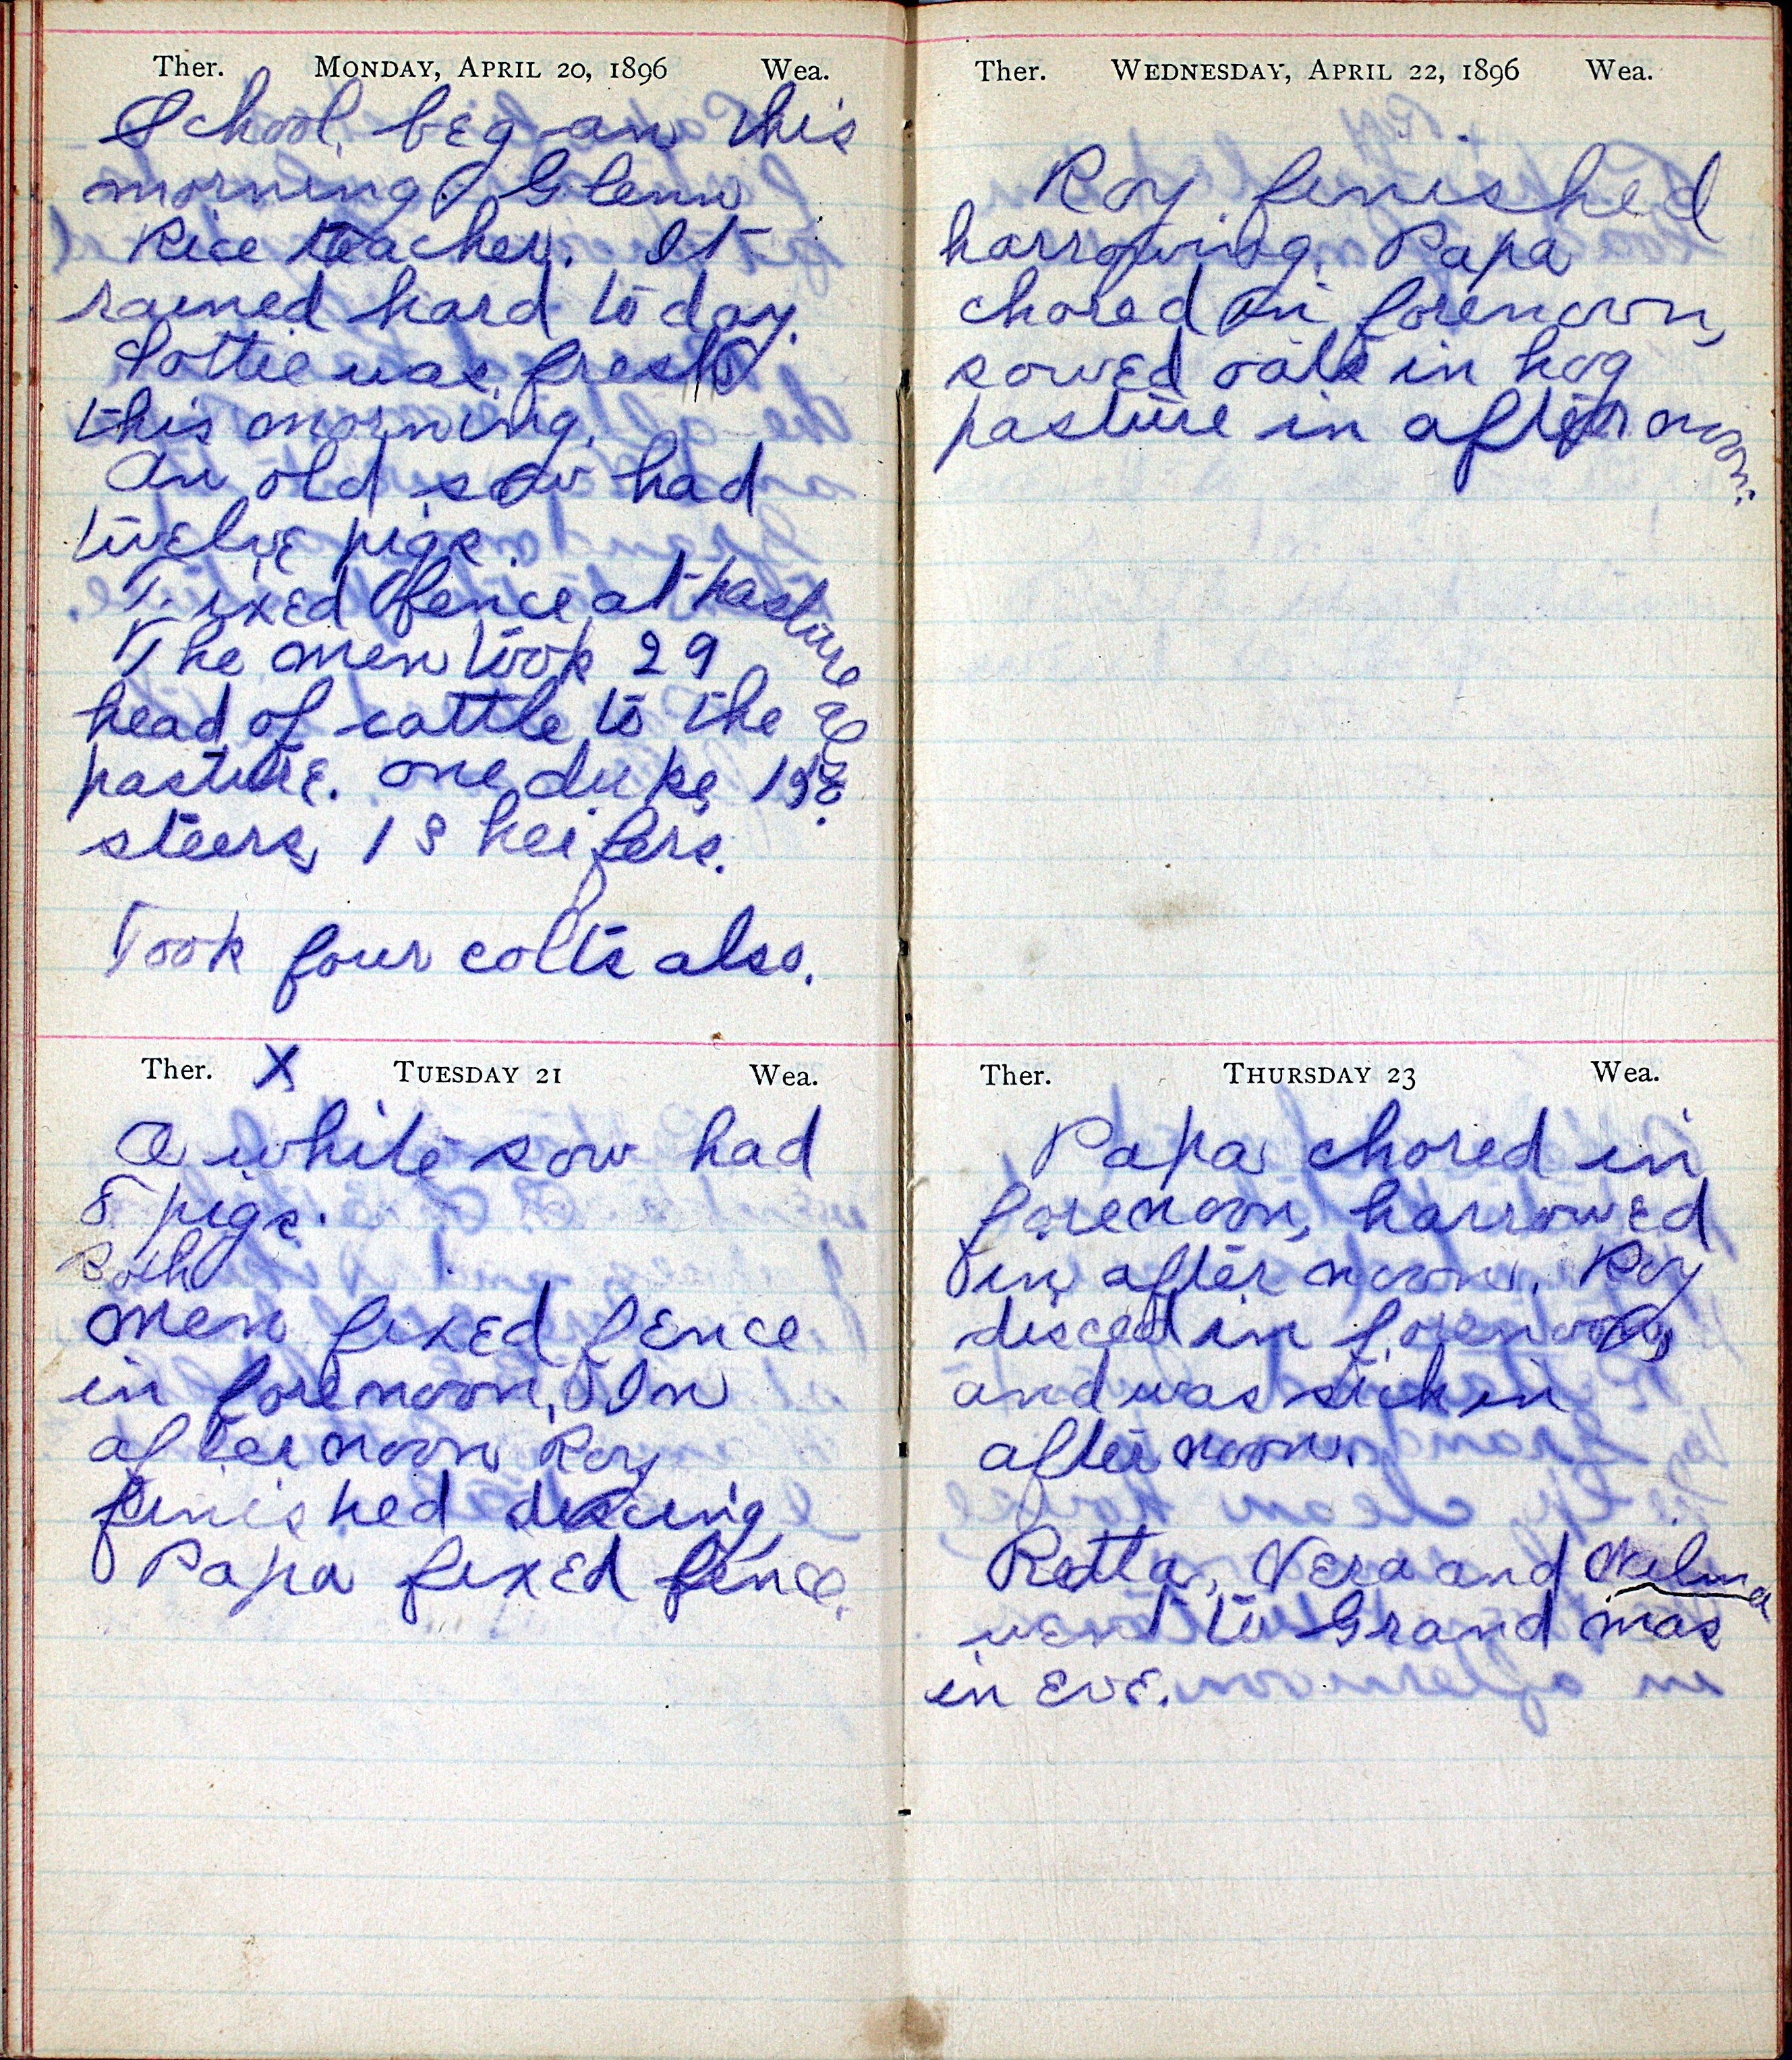 Ther. MONDAY, APRIL 20, 1896 Wea.
School began this
morning. Glenn
Rice teacher. It
rained hard to day.
Lottie was fresh
this morning.
An old sow had
twelve pigs.
Fixed fence at pasture
The men took 29
head of cattle to the
pasture. one duke, 15
steers, 13 heifers.
Took four colts also.
Ther. X TUESDAY 21 Wea.
A white sow had
8 pigs.
Both
men fixed fence
in forenoon, In
afternoon Roy
finished discing
Papa fixed fence.
Ther. WEDNESDAY, APRIL 22, 1896 Wea.
Roy finished
harrowing. Papa
chored in forenoon,
sowed oats in hog
pasture in after noon.
Ther. THURSDAY 23 Wea.
Papa chored in
forenoon, harrowed
in after noon. Roy
disced in forenoon,
and was sick in
after noon.
Retta, Vera and Wilma
went to Grand mas
in Eve.